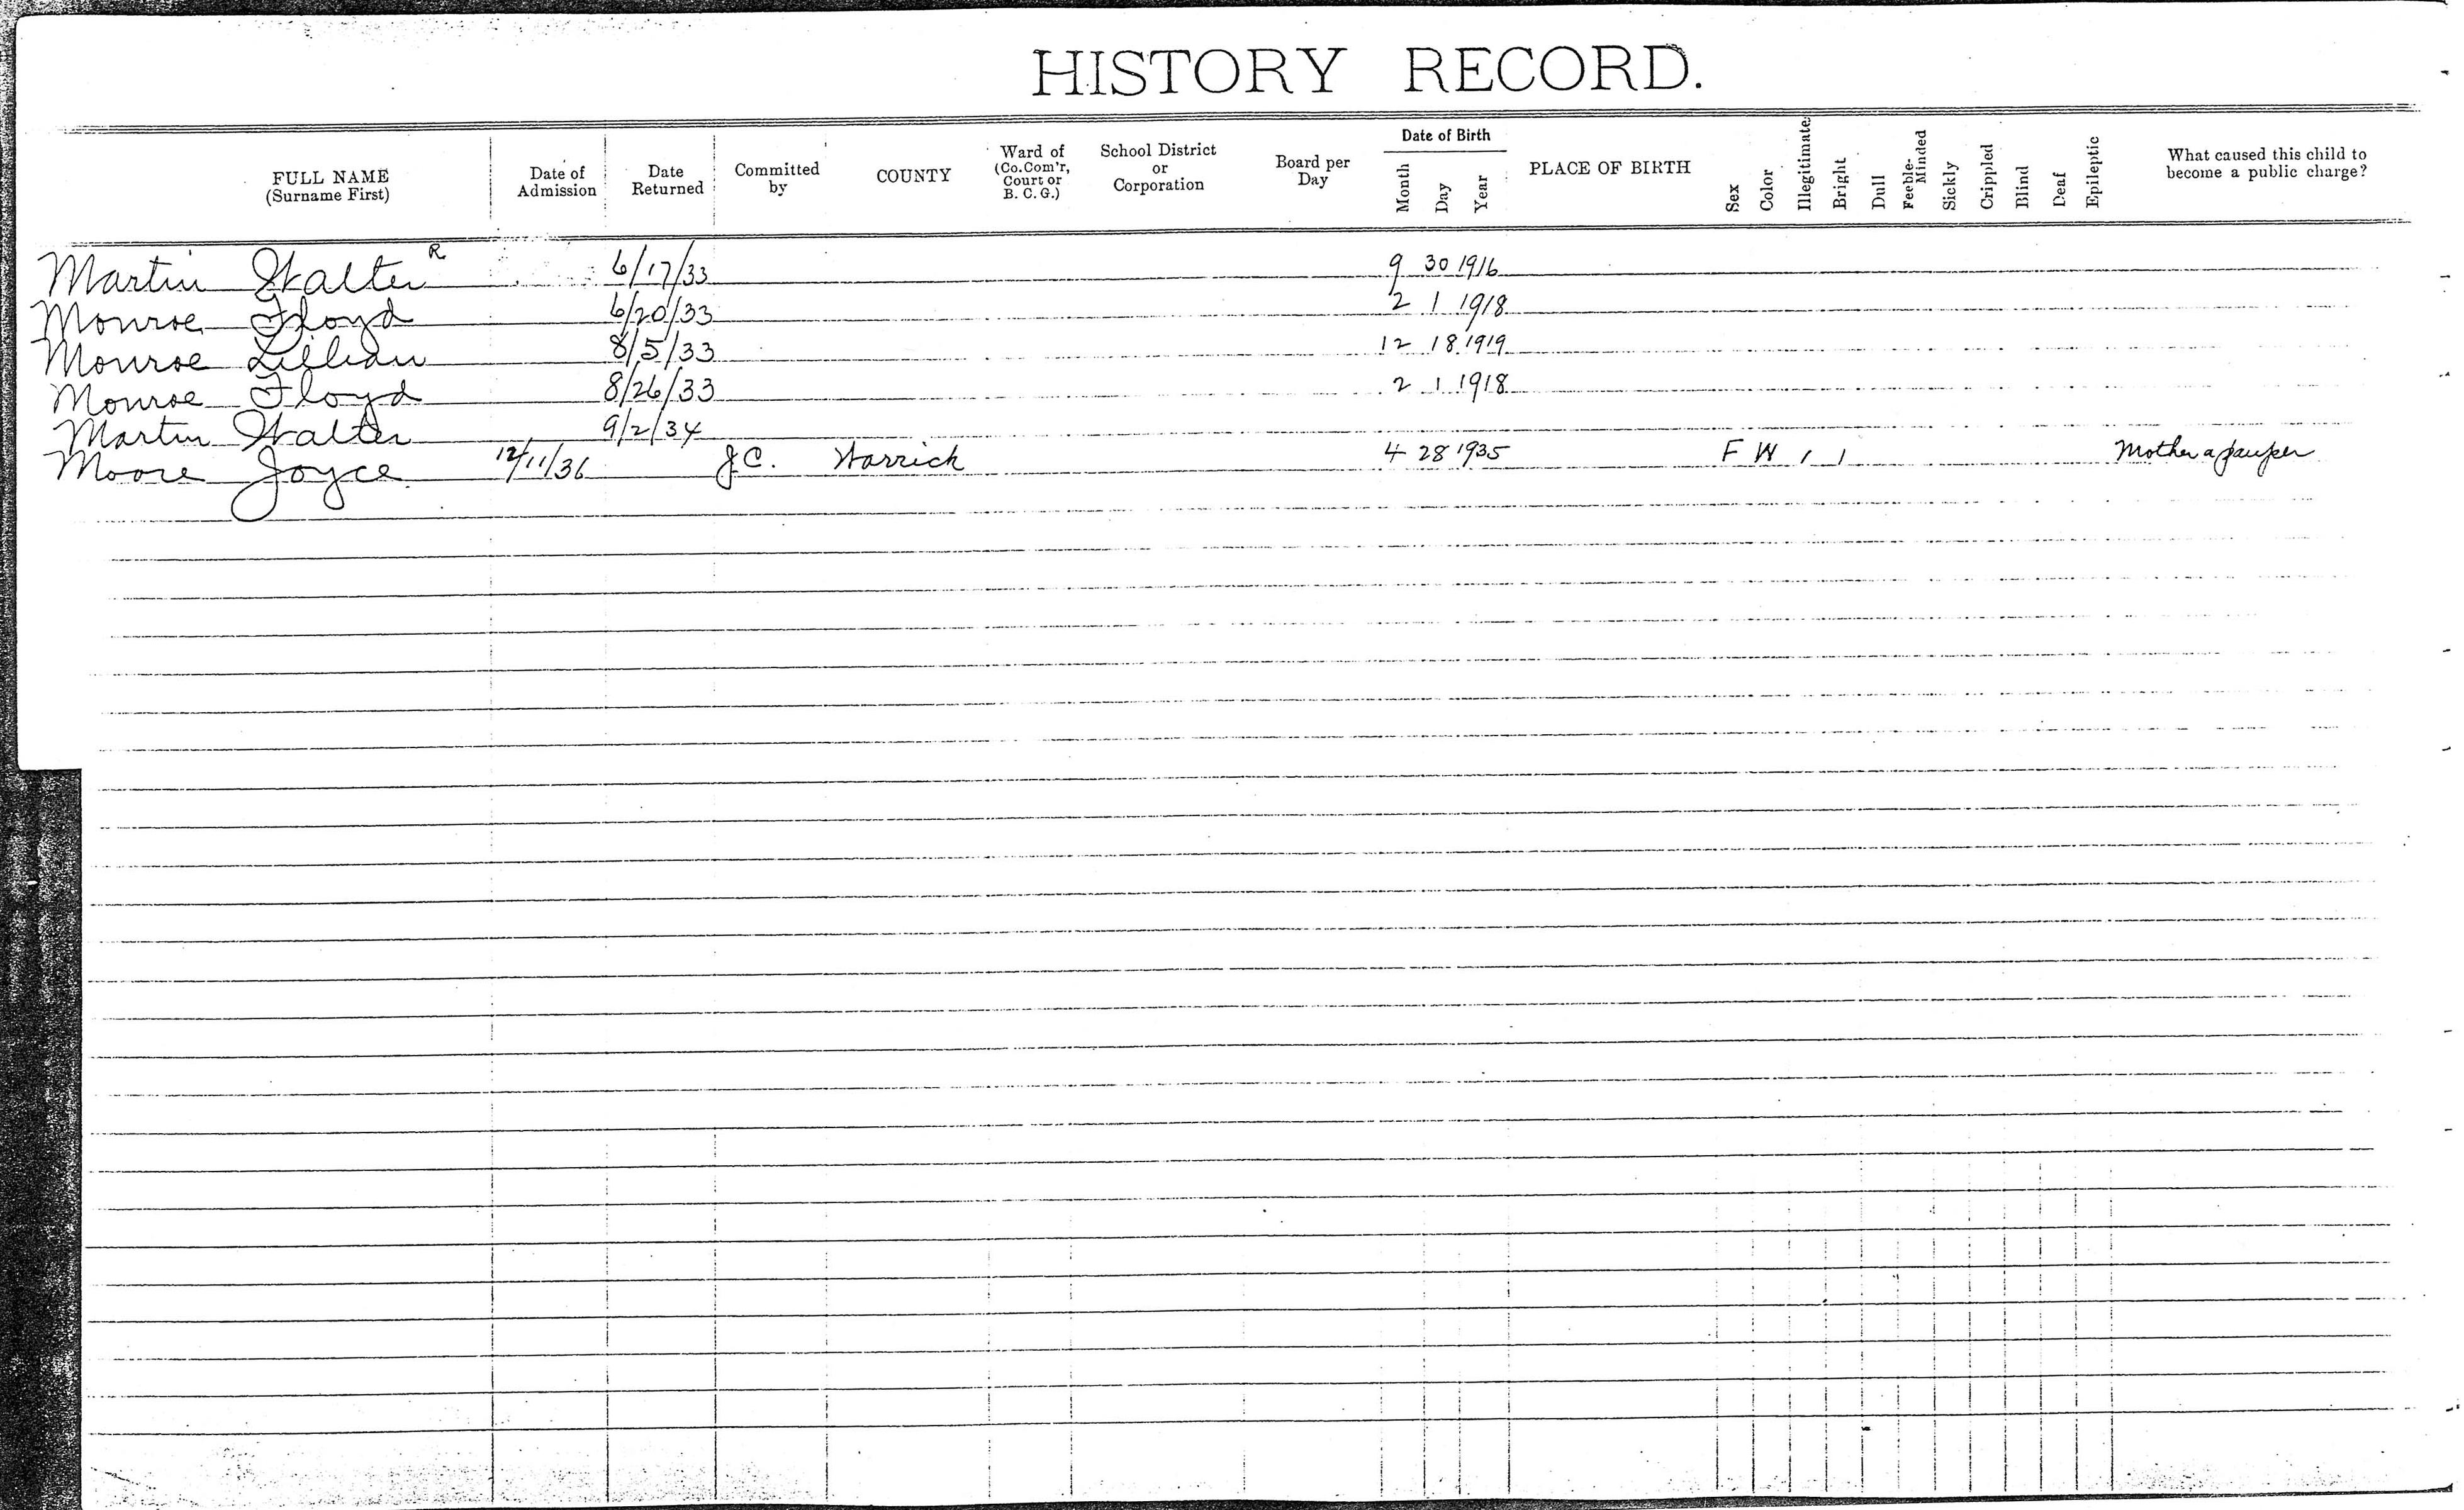 HISTORY RECORD.
FULL NAME (Surname First) Date of Admission Date Returned Committed by COUNTY Ward of (Co.Com'r, Court or B. C. G.) School District or Corporation Board per Day Date of Birth Month Day Year PLACE OF BIRTH Sex Color Illegitimate Bright Dull Feeble-Minded Sickly Crippled Blind Deaf Epileptic What caused this child to become a public charge?
Martin Walter R 6/17/33 9 30 1916
Monroe Floyd 6/20/33 2 1 1918
Monroe Lillian 8/5/33 12 18 1919
Monroe Floyd 8/26/33 2 1 1918
Martin Walter 9/2/34
Moore Joyce 12/11/36 J.C. Warrick 4 28 1935 F W 1 1 Mother a pauper